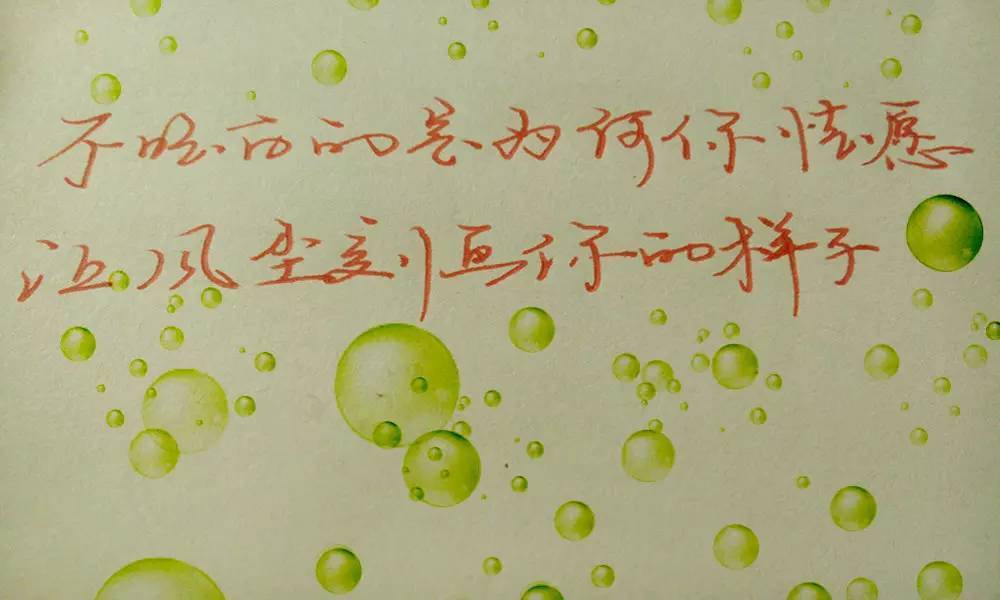 不唱词的是为何你情愿
让风尘刻画你的样子